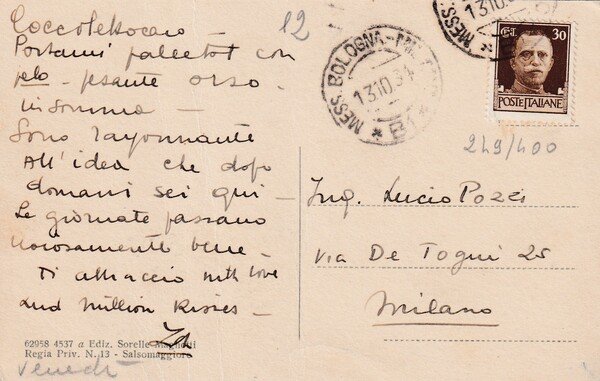 12
Coccolettocaro -
Portami paletot con
pelo - pesante orso -
insomma -
Sono rayonnante
All' idea che dopo
domani sei qui -
Le giornate passano
noiosamente bene -
Ti abbraccio with love
and million kisses -
62958 4537 a Ediz. Sorelle Magnotti
Regia Priv. N. 13 - Salsomaggiore
Venerdì
MESS. BOLOGNA - MILANO
13.10.34
* B1 *
MESS.
13.10.34
CT. 30
POSTE ITALIANE
249/400
Ing. Lucio Pozzi
Via De Togni 25
Milano